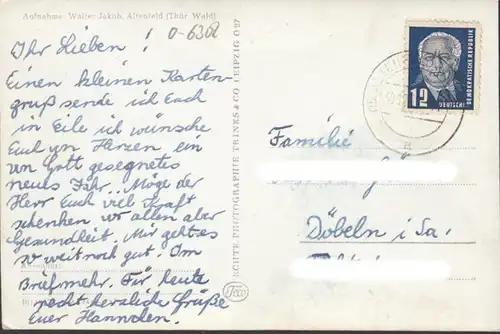 Aufnahme: Walter Jakob, Altenfeld (Thür Wald)
0-6308
Ihr Lieben!
Einen kleinen Karten-
gruß sende ich Euch
in Eile ich wünsche
Euch von Herzen ein
von Gott gesegnetes
neues Jahr. Möge der
Herr Euch viel Kraft
schenken vor allen aber
Gesundheit. Mir geht es
so weit noch gut. Im
Brief mehr. Für heute
recht herzliche Grüße
Euer Hannchen.
ECHTE PHOTOGRAPHIE TRINKS & CO LEIPZIG O 27
Trico
12
DEUTSCHE
DEMOKRATISCHE REPUBLIK
Familie
Döbeln i Sa.